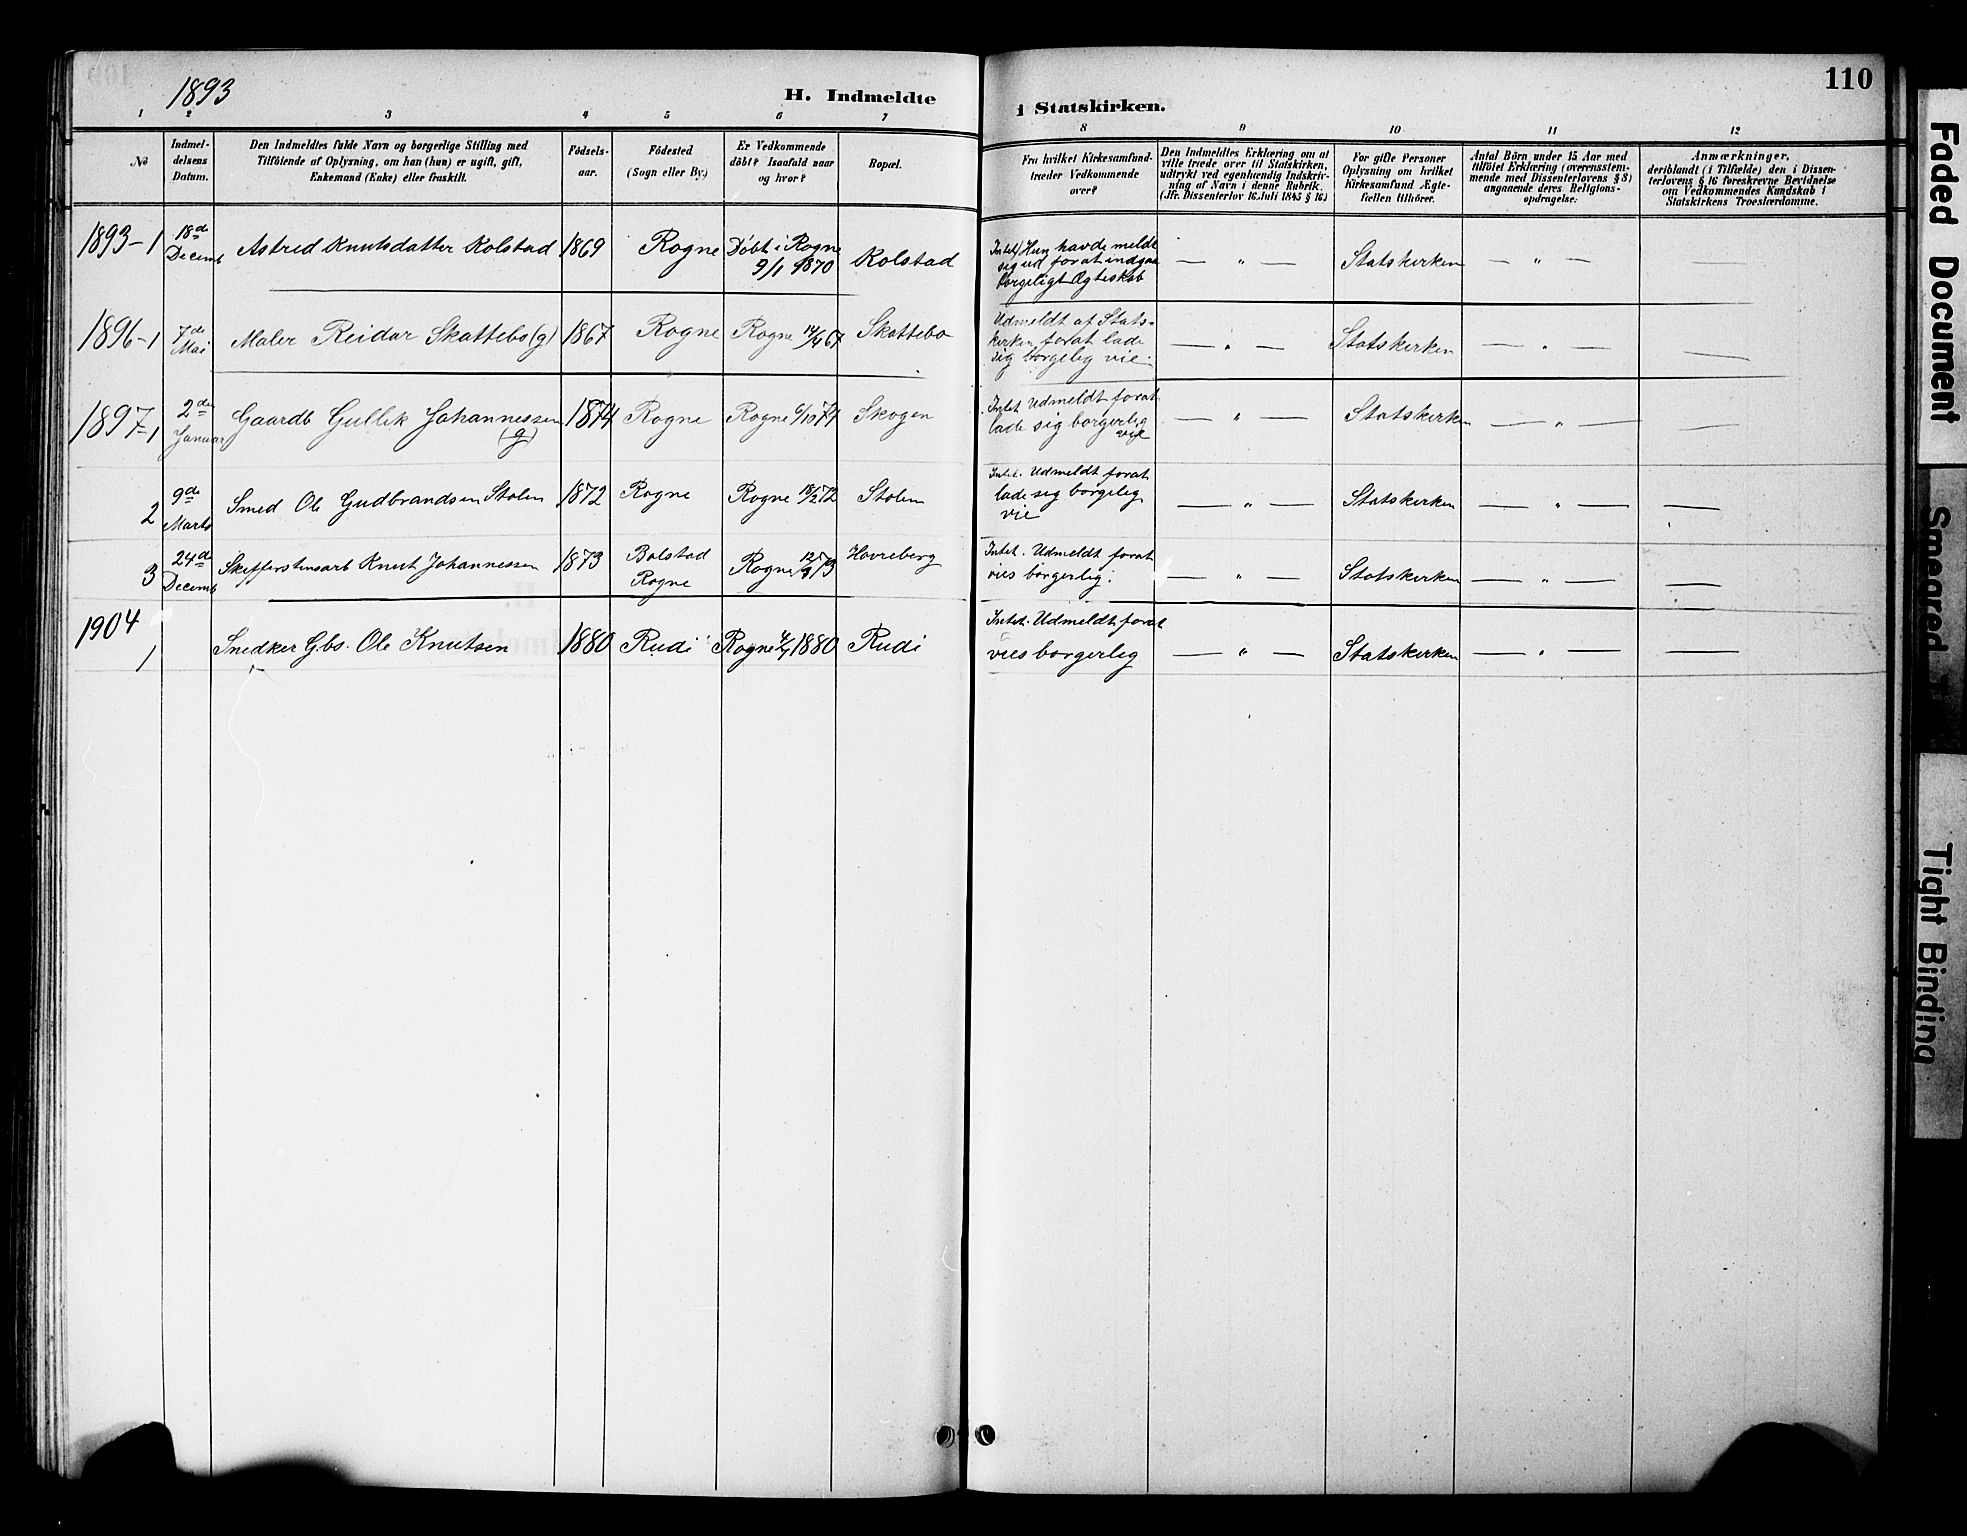 1893
H. Indmeldte
i Statskirken.
110
1 2 3 4 5 6 7 8 9 10 11 12
No
Indmel-
delsens
Datum.
Den Indmeldtes fulde Navn og borgerlige Stilling med
Tilföiende af Oplysning, om han (hun) er ugift, gift,
Enkemand (Enke) eller fraskilt.
Födsels-
aar.
Födested
(Sogn eller By.)
Er Vedkommende
döbt? Isaafald naar
og hvor?
Bopæl.
Fra hvilket Kirkesamfund
træder Vedkommende
over?
Den Indmeldtes Erklæring om at
ville træde over til Statskirken,
udtrykt ved egenhændig Indskriv-
ning af Navn i denne Rubrik.
(Jfr. Dissenterlov 16. Juli 1845 § 16.)
For gifte Personer
Oplysning om hvilket
Kirkesamfund Ægte-
fællen tilhörer.
Antal Börn under 15 Aar med
tilföiet Erklæring (overensstem-
mende med Dissenterlovens § 8)
angaaende deres Religions-
opdragelse.
Anmærkninger,
deriblandt (i Tilfælde) den i Dissen-
terlovens § 16 foreskrevne Bevidnelse
om Vedkommendes Kundskab i
Statskirkens Troeslærdomme.
1893-1
18de
Decemb
Astrid Knutsdatter Kolstad
1869
Rogne
Döbt i Rogne
9/1 1870
Kolstad
Intet/Hun havde meldt
sig ud forat indgaa
borgeligt Ægteskab
— " —
Statskirken
— " —
—
1896-1
7de
Mai
Maler Reidar Skattebo (g)
1867
Rogne
Rogne 14/4 67
Skattebo
Udmeldt af Stats-
kirken forat lade
sig borgelig vie.
— " —
Statskirken
— " —
—
1897-1
2de
Januar
Gaardb Gullik Johannessen
(g)
1874
Rogne
Rogne 6/10 74
Skogen
Intet Udmeldt forat
lade sig borgerlig
vie
— " —
Statskirken
— " —
—
2
9de
Marts
Smed Ole Gudbrandsen Stolen
1872
Rogne
Rogne 18/2 72
Stolen
Intet. Udmeldt forat
lade sig borgelig
vie
— " —
Statskirken
— " —
—
3
24de
Decemb
Skifferstensarb Knut Johannessen
1873
Bolstad
Rogne
Rogne 12/3 73
Hovreberg
Intet. Udmeldt forat
vies borgerlig.
— " —
Statskirken
— " —
—
1904
1
Snedker Gbs. Ole Knutsen
1880
Rudi
Rogne 4/7 1880
Rudi
Intet. Udmeldt forat
vies borgerlig
— " —
Statskirken
— " —
—
Faded Document
Smeared
Tight Binding